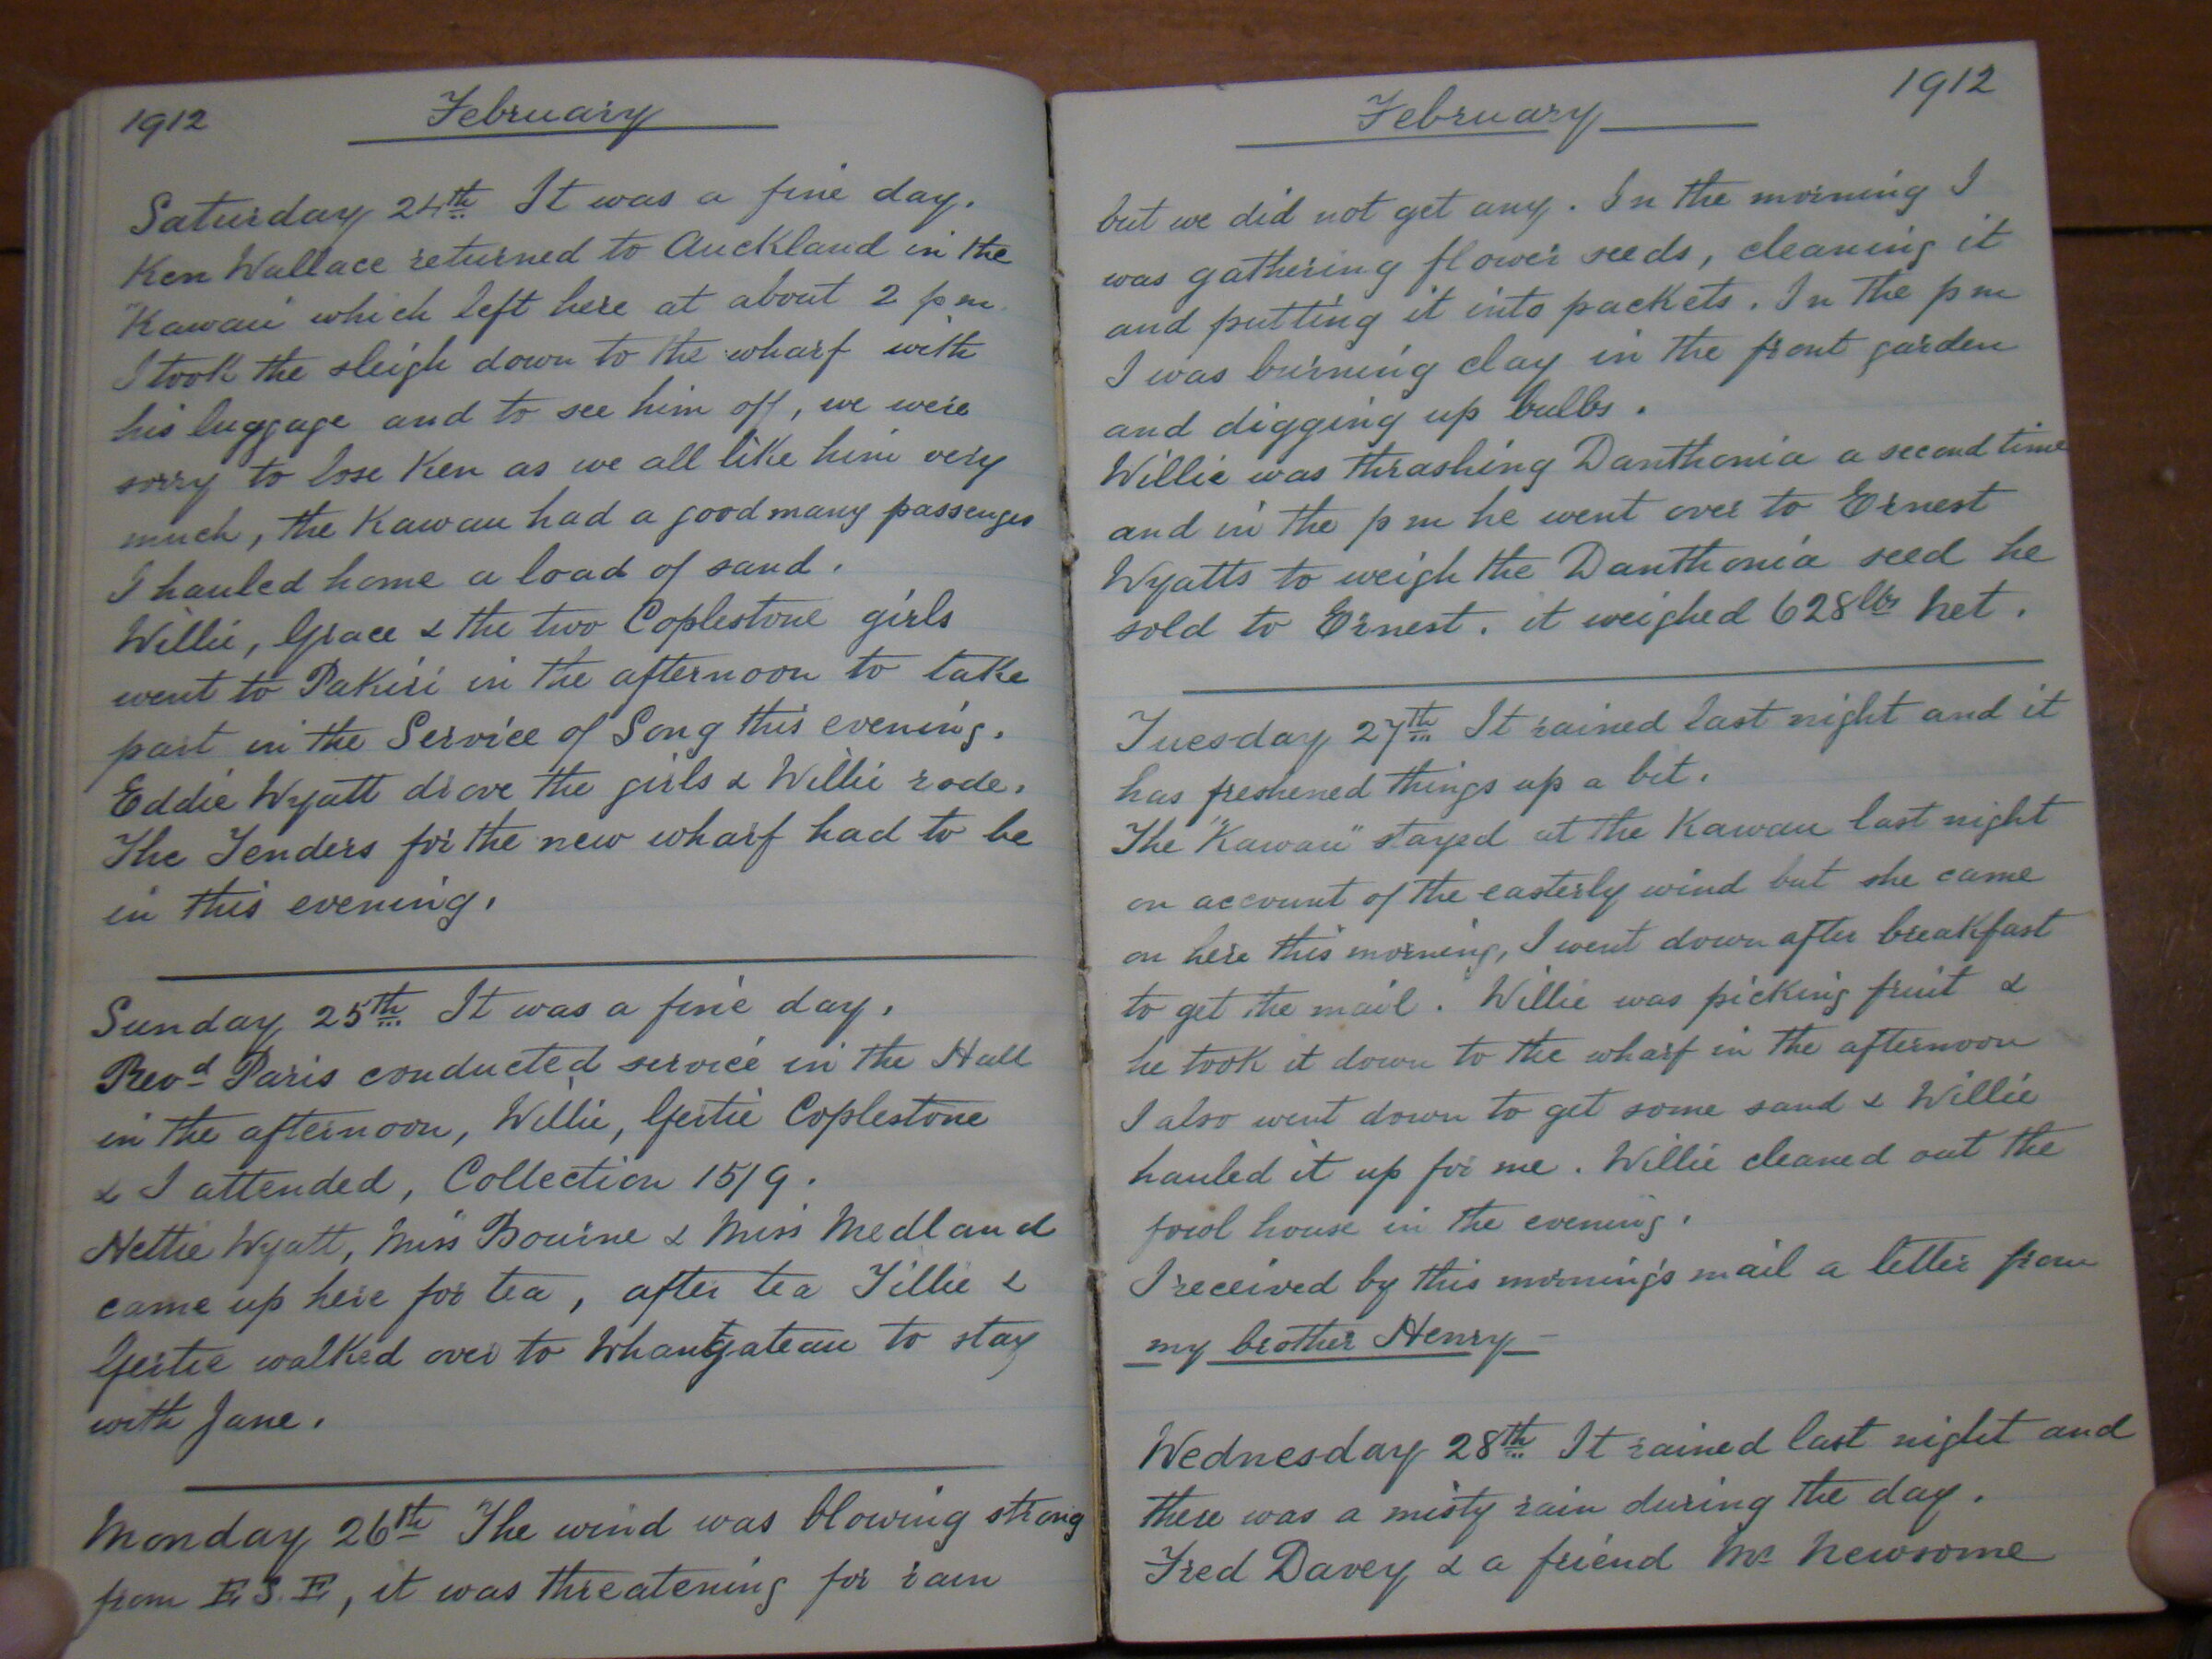 1912 February
Saturday 24th It was a fine day.
Ken Wallace returned to Auckland in the
"Kawau" which left here at about 2 pm.
I took the sleigh down to the wharf with
his luggage and to see him off, we were
sorry to lose Ken as we all like him very
much, the Kawau had a good many passengers
I hauled home a load of sand.
Willie, Grace & the two Coplestone girls
went to Pakiri in the afternoon to take
part in the Service of Song this evening.
Eddie Wyatt drove the girls & Willie rode.
The Tenders for the new wharf had to be
in this evening.
Sunday 25th It was a fine day.
Revd Paris conducted service in the Hall
in the afternoon, Willie, Gertie Coplestone
& I attended, Collection 15/9.
Nettie Wyatt, Miss Bourne & Miss Medland
came up here for tea, after tea Tillie &
Gertie walked over to Whangateau to stay
with Jane.
Monday 26th The wind was blowing strong
from E.S.E, it was threatening for rain
February 1912
but we did not get any. In the morning I
was gathering flower seeds, cleaning it
and putting it into packets. In the pm
I was burning clay in the front garden
and digging up bulbs.
Willie was thrashing Danthonia a second time
and in the pm he went over to Ernest
Wyatts to weigh the Danthonia seed he
sold to Ernest. it weighed 628lbs net.
Tuesday 27th It rained last night and it
has freshened things up a bit.
The "Kawau" stayed at the Kawau last night
on account of the easterly wind but she came
on here this morning, I went down after breakfast
to get the mail. Willie was picking fruit &
he took it down to the wharf in the afternoon
I also went down to get some sand & Willie
hauled it up for me. Willie cleaned out the
fowl house in the evening.
I received by this morning's mail a letter from
my brother Henry -
Wednesday 28th It rained last night and
there was a misty rain during the day.
Fred Davey & a friend Mr Newsome